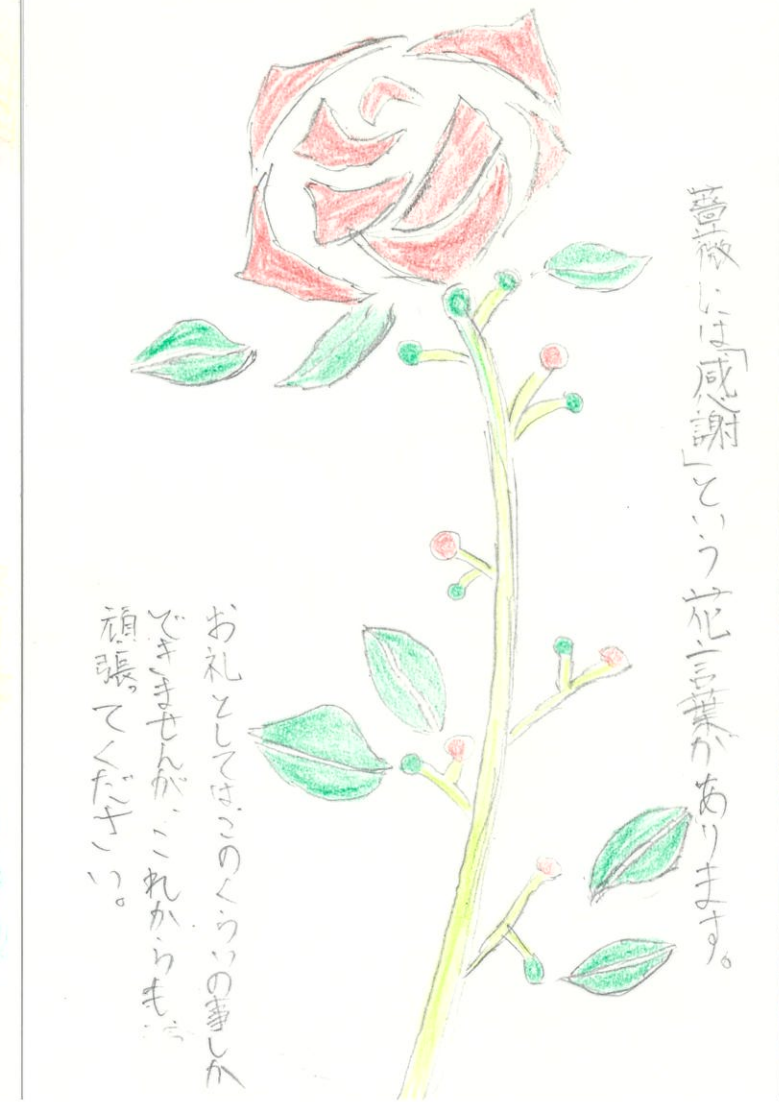 薔薇には「感謝」という花言葉があります。
お礼としては、このくらいの事しか
できませんが、これからも、
頑張ってください。